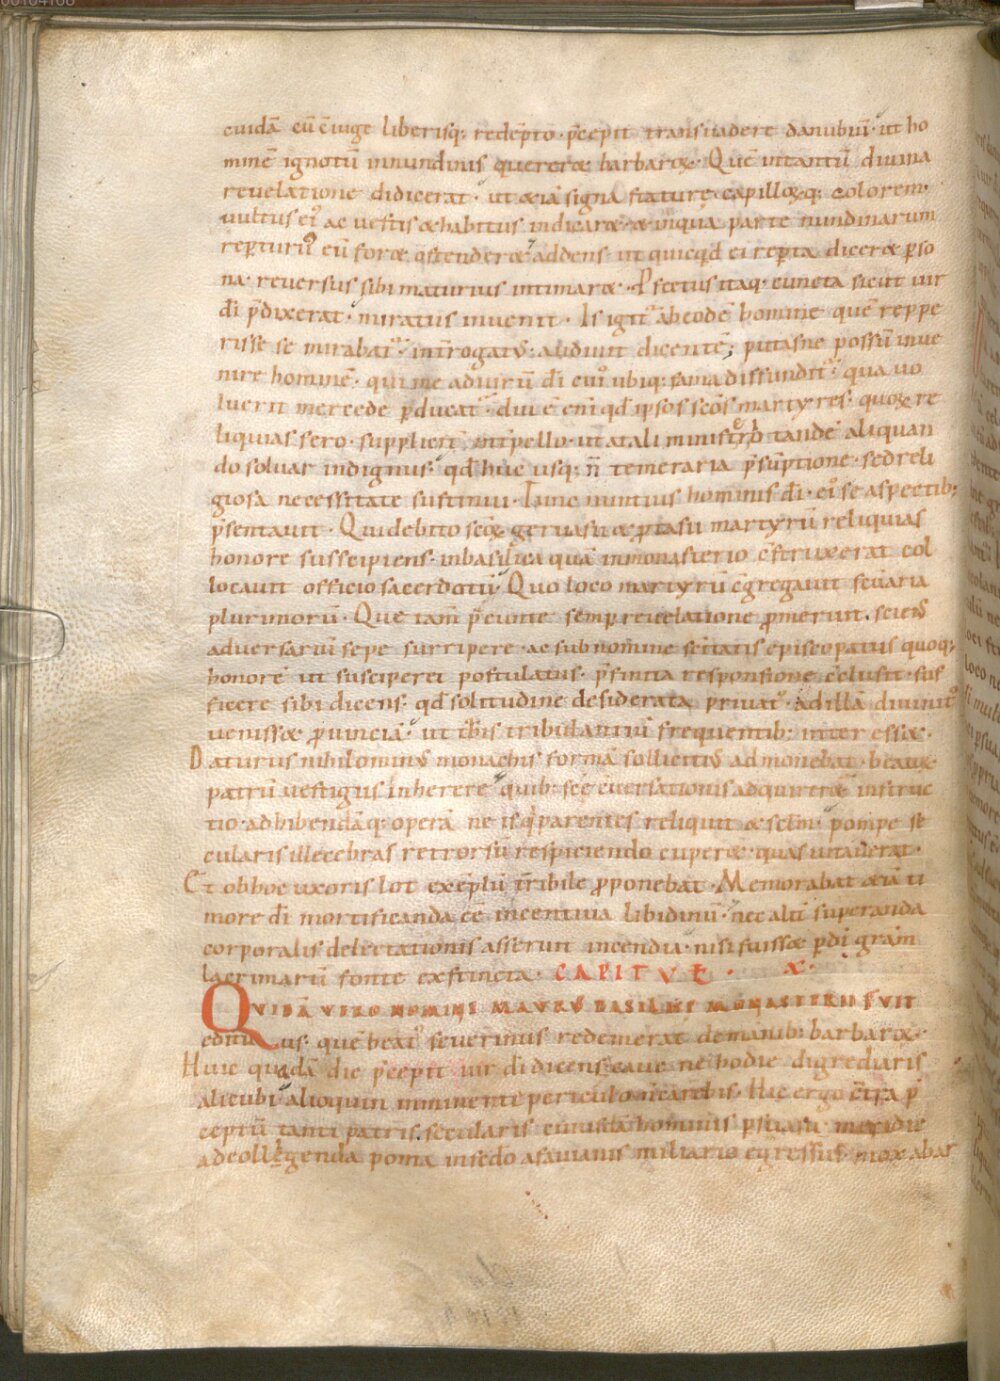 cuidā cū ꝯiuge liberisq; redēpto· p̄cepit transuadere danubiū· ut ho
minē ignotū innundinis quereret barbarox· Quē intantū diuina
reuelatione didicerat· ut & iā signa staturę capilloxq; colorem·
uultus ei' ac uestis & habitus indicaret· & inqua parte nundinarum
rep̱turus eū foret ostenderet addens· ut quicqd ei rep̱ta diceret p̱so
na· reuersus sibi maturius intimaret· P̱fectus itaq; cuncta sicut uir
dī p̄dixerat· miratus inuenit· Is igit' ab eodē homine quē reppe
risse se mirabat'· int̄rogatus: audiuit dicentē; putasne possū inue
nire hominē· qui me ad uirū dī cui' ubiq; fama diffundit'· qua uo
luerit mercede p̱ducat· diu ē enī qd ipsos scōs martyres· quox re
liquias fero· supplicit' int̄pello· ut a tali ministerio tandē aliquan
do soluar indignus· qd huc usq; n̄ temeraria p̄sūptione· sed reli
giosa necessitate sustinui· Tunc nuntius hominis dī· ei' se aspectib;
p̄sentauit· Qui debito scox geruasii & p̱tasii martyrū reliquias
honore suscipiens· in basilica quā in monasterio ꝯstruxerat col
locauit officio sacerdotū· Quo loco martyrū ꝯgregauit scuaria
plurimorū· Que tam̄ p̄eunte semp̱ reuelatione p̱meruit· sciens
aduersariū sepe surripere· ac sub nomine sc̄itatis episcopatus quoq;
honorē ut susciperet postulatus· p̄finita responsione ꝯclusit· suf
ficere sibi dicens· qd solitudine desiderata priuat'· ad illā diuinit'
uenisset p̱uinciā· ut tbis tribulantiū frequentib; inter esset·
Daturus nihilominus monachis formā sollicitius admonebat· beatox·
patrū uestigiis inherere· quib; scē ꝯuersationis adquireret' instruc
tio· adhibendāq; operā ne is q' parentes reliquit & sclm· pompe sē
cularis illecebras retrorsū respiciendo cuperet· quas uitauerat·
Et ob hoc uxoris lot exēplū t̄ribile p̱ponebat· Memorabat & iā ti
more dī mortificanda ēē incentiua libidinū· nec alit' superanda
corporalis delectationis asserun incendia· nisi fuissent p̱ dī grām
lacrimarū fonte exstincta· CAPITVL· X·
QVIDĀ VERO NOMINE MAVRVS BASILICE MONASTERII FVIT
edituus· quē beat' seuerinus redemerat de manib; barbarox·
Huic quadā die p̄cepit uir dī dicens· caue ne hodie digrediaris
alicubi alioquin imminente periculo n̄ carebis· Hic ergo ꝯtra p̄
ceptū tanti patris· secularis cuiusdā hominis p̱suasu· meridie
ad colligenda poma in scdo a fauianis miliario egressus· mox abar